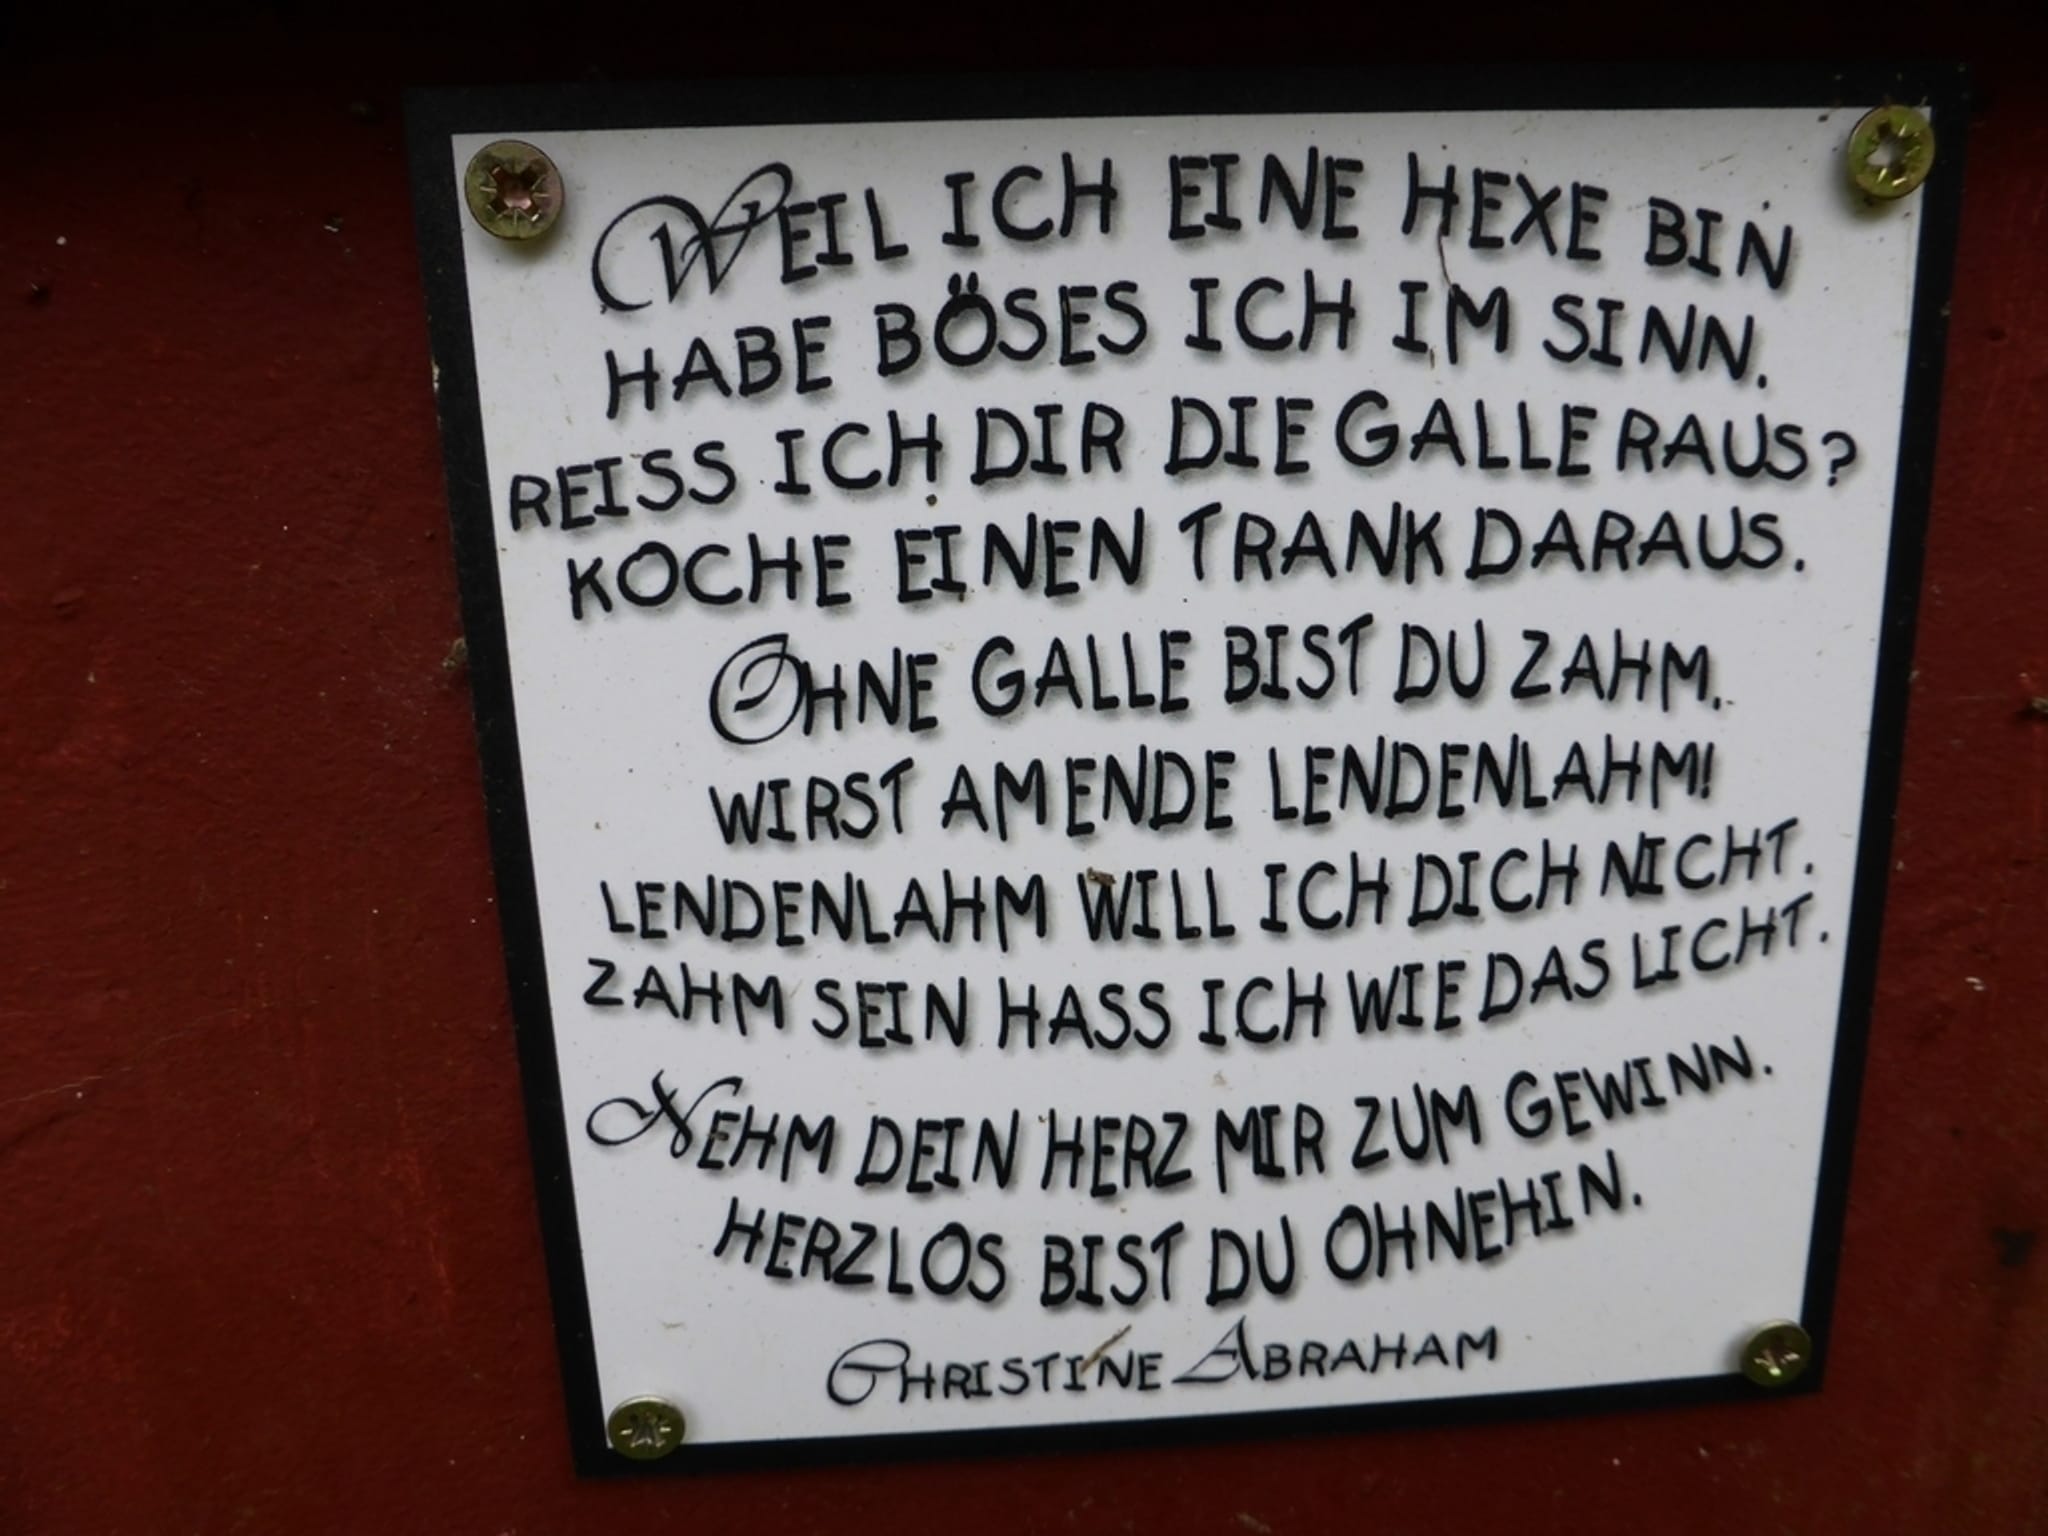 WEIL ICH EINE HEXE BIN
HABE BÖSES ICH IM SINN.
REISS ICH DIR DIE GALLE RAUS?
KOCHE EINEN TRANK DARAUS.
OHNE GALLE BIST DU ZAHM.
WIRST AM ENDE LENDENLAHM!
LENDENLAHM WILL ICH DICH NICHT.
ZAHM SEIN HASS ICH WIE DAS LICHT.
NEHM DEIN HERZ MIR ZUM GEWINN.
HERZLOS BIST DU OHNEHIN.
CHRISTINE ABRAHAM